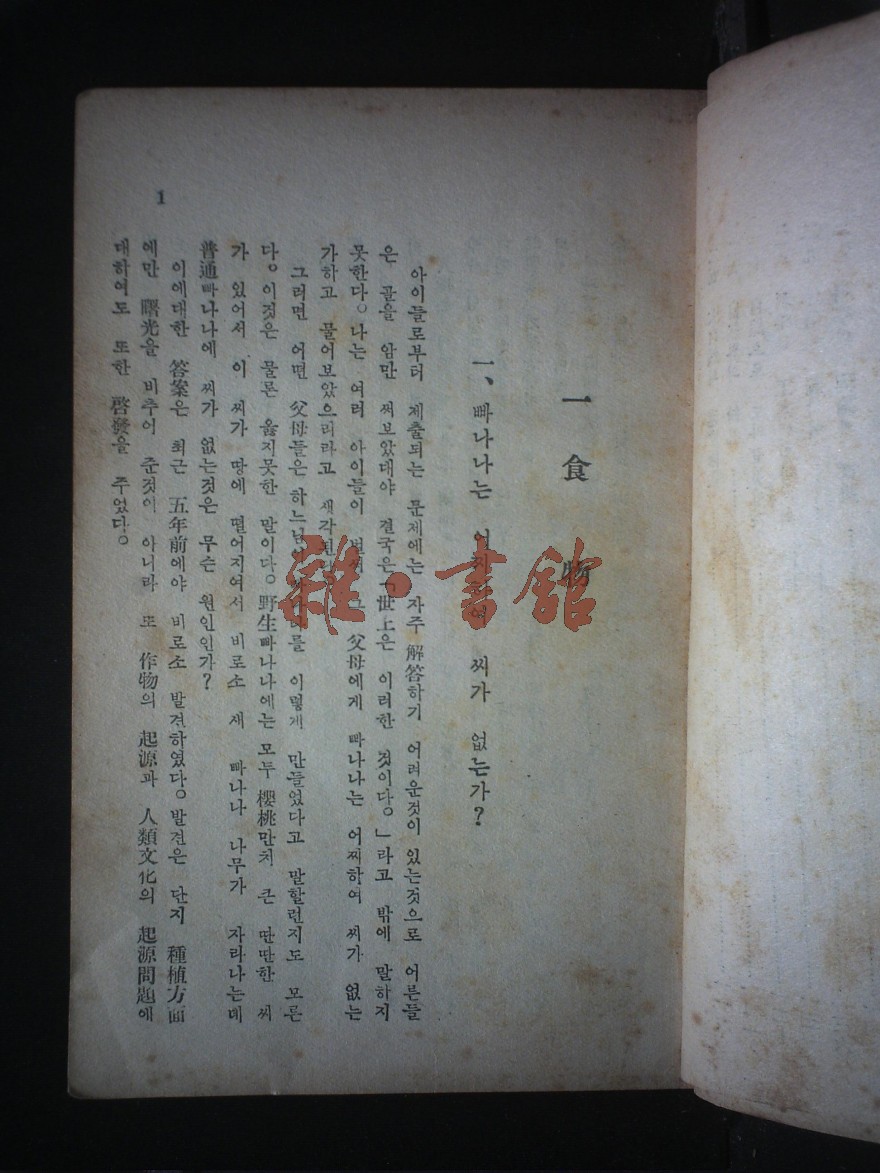 一 食 物
一、빠나나는 어찌하여 씨가 없는가?
아이들로부터 제출되는 문제에는 자주 解答하기 어려운것이 있는것으로 어른들
은 골을 암만 써보았대야 결국은「世上은 이러한 것이다。」라고 밖에 말하지
못한다。나는 여러 아이들이 벌써 그 父母에게 빠나나는 어찌하여 씨가 없는
가하고 물어보았으리라고 생각된다
그러면 어떤 父母들은 하느님이 빠나나를 이렇게 만들었다고 말할런지도 모른
다。이것은 물론 옳지못한 말이다。野生빠나나에는 모두 櫻桃만치 큰 딴딴한 씨
가 있어서 이 씨가 땅에 떨어지여서 비로소 새 빠나나 나무가 자라나는데
普通빠나나에 씨가 없는것은 무슨 원인인가?
이에대한 答案은 최근 五年前에야 비로소 발견하였다。발견은 단지 種植方面
에만 曙光을 비추어 준것이 아니라 또 作物의 起源과 人類文化의 起源問題에
대하여도 또한 啓發을 주었다。
1
雜·書館